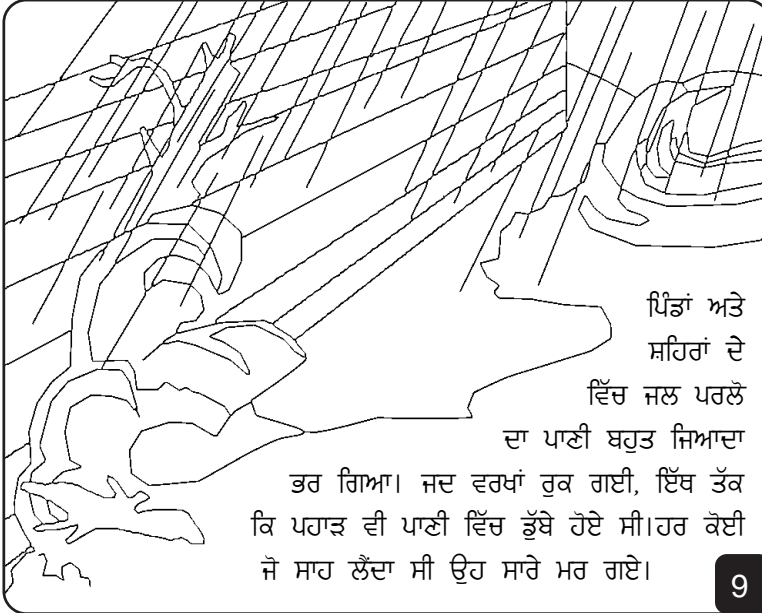 ਪਿੰਡਾਂ ਅਤੇ
ਸ਼ਹਿਰਾਂ ਦੇ
ਵਿੱਚ ਜਲ ਪਰਲੋ
ਦਾ ਪਾਣੀ ਬਹੁਤ ਜਿਆਦਾ
ਭਰ ਗਿਆ। ਜਦ ਵਰਖਾਂ ਰੁਕ ਗਈ, ਇੱਥ ਤੱਕ
ਕਿ ਪਹਾੜ ਵੀ ਪਾਣੀ ਵਿੱਚ ਡੁੱਬੇ ਹੋਏ ਸੀ।ਹਰ ਕੋਈ
ਜੋ ਸਾਹ ਲੈਂਦਾ ਸੀ ਉਹ ਸਾਰੇ ਮਰ ਗਏ।
9